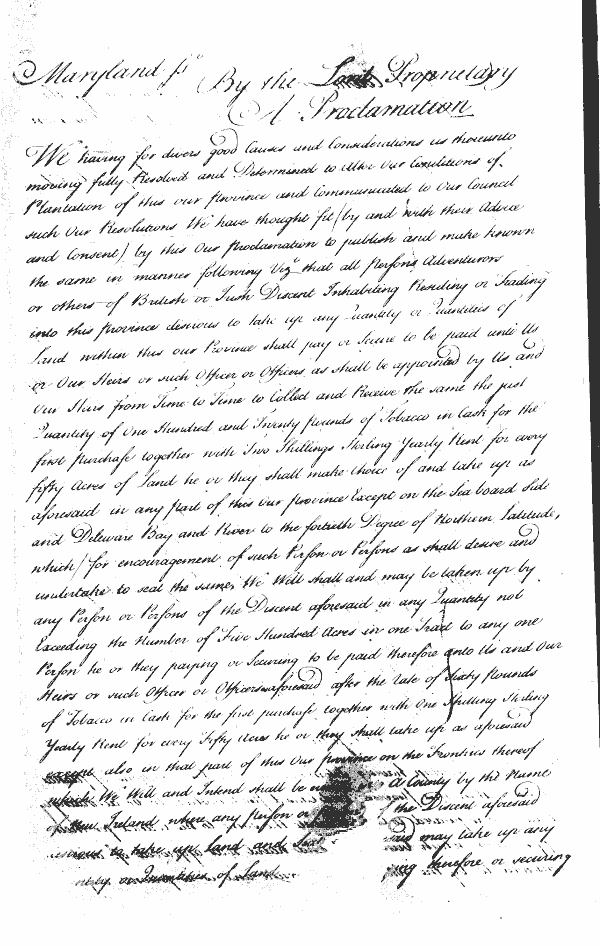 Maryland ss. By the Lord Proprietary
A Proclamation
We having for divers good Causes and Considerations us thereunto
moving fully Resolved and Determined to Alter Our Conditions of
Plantation of this our province and Communicated to Our Council
such Our Resolutions We have thought fit (by and with their Advice
and Consent) by this Our proclamation to publish and make known
the same in manner following Vizt that all persons Adventurors
or others of British or Irish Discent Inhabiting Residing or Trading
into this province desirous to take up any Quantity or Quantities of
Land within this our Province shall pay or secure to be paid unto Us
or Our Heirs or such Officer or Officers as shall be appointed by Us and
Our Heirs from Time to Time to Collect and Receive the same the just
Quantity of One Hundred and Twenty pounds of Tobacco in Cask for the
first purchase together with Two Shillings Sterling Yearly Rent for every
fifty Acres of Land he or they shall make choice of and take up as
aforesaid in any part of this Our province Except on the Sea board Side
and Deleware Bay and River to the fortieth Degree of Northern Latitude,
which (for encouragement of such Person or Persons as shall desire and
undertake to seat the same) We Will shall and may be taken up by
any Person or Persons of the Discent aforesaid in any Quantity not
Exceeding the Number of Five Hundred Acres in one Tract to any one
Person he or they paying or Securing to be paid therefore unto Us and Our
Heirs or such Officer or Officers aforesaid after the Rate of Sixty Pounds
of Tobacco in Cask for the first purchase together with One Shilling Sterling
Yearly Rent for every Fifty Acres he or they shall take up as aforesaid
also in that part of this Our province on the Frontiers thereof
which We Will and Intend shall be A County by the Name
of New Ireland where any person or the Discent aforesaid
to take up land and said may take up any
or Quantities of Land therefore or securing